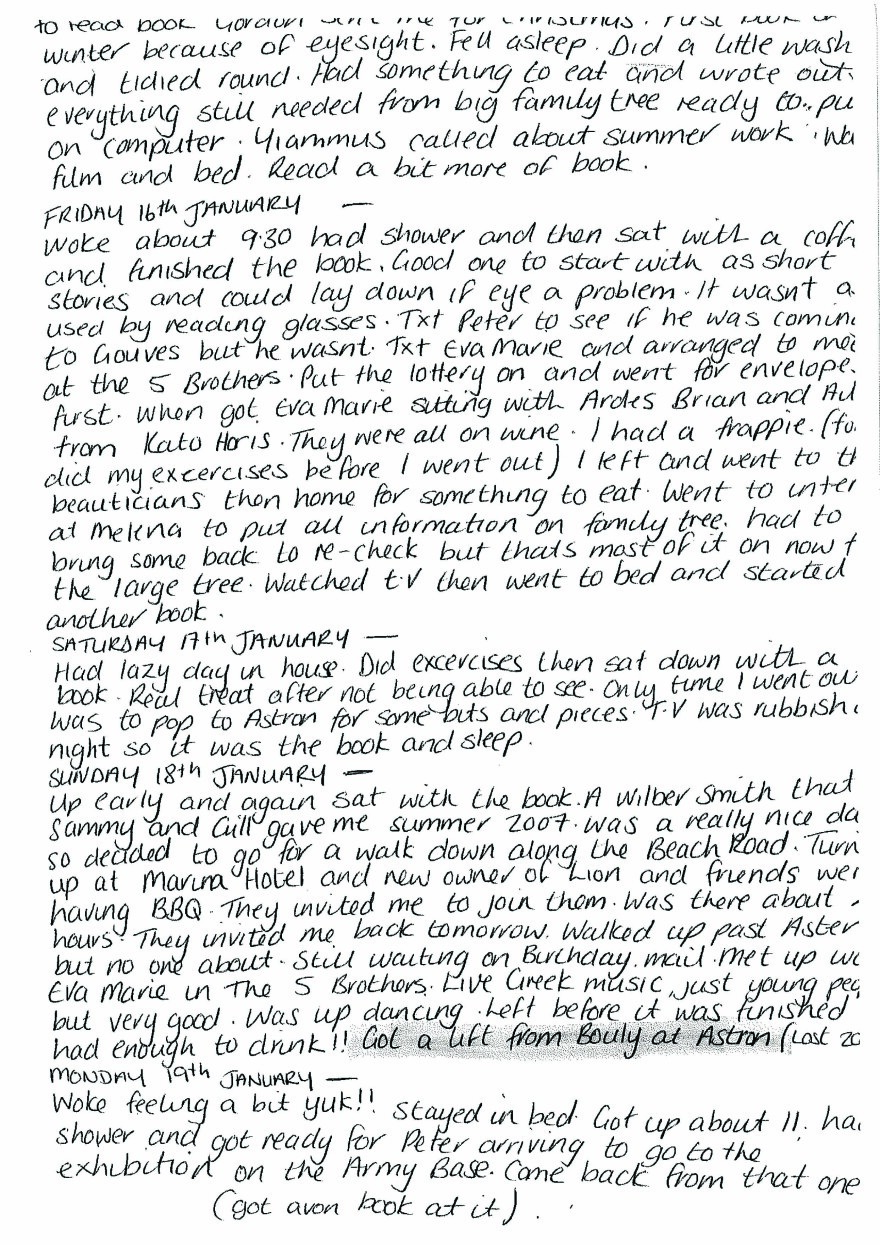 to read book Gordon sent me for Christmas. First book of
winter because of eyesight. Fell asleep. Did a little wash
and tidied round. Had something to eat and wrote out
everything still needed from big family tree ready to pu
on computer. Yiammus called about summer work. Wa
film and bed. Read a bit more of book.
FRIDAY 16th JANUARY —
Woke about 9.30 had shower and then sat with a coff
and finished the book. Good one to start with as short
stories and could lay down if eye a problem. It wasnt a
used by reading glasses. Txt Peter to see if he was comin
to Gouves but he wasnt. Txt Eva Marie and arranged to me
at the 5 Brothers. Put the lottery on and went for envelope
first. When got Eva Marie sitting with Ardes Brian and
from Kato Horis. They were all on wine. I had a frappie. (fo
did my excercises before I went out) I left and went to th
beauticians then home for something to eat. Went to inter
at Melena to put all information on family tree. had to
bring some back to re-check but thats most of it on now f
the large tree. Watched t.v then went to bed and started
another book.
SATURSAY 17th JANUARY —
Had lazy day in house. Did excercises then sat down with a
book. Real treat after not being able to see. Only time I went ou
was to pop to Astron for some bits and pieces. T.V was rubbish
night so it was the book and sleep.
SUNDAY 18th JANUARY —
Up early and again sat with the book. A Wilber Smith that
Sammy and Gill gave me summer 2007. was a really nice da
so decided to go for a walk down along the Beach Road. Turn
up at Marina Hotel and new owner of Lion and friends wer
having BBQ. They invited me to join them. Was there about
hours. They invited me back tomorrow. Walked up past Aster
but no one about. Still waiting on Birthday mail. Met up w
Eva Marie in The 5 Brothers. Live Greek music, just young peo
but very good. Was up dancing. Left before it was finished
had enough to drink!! Got a lift from Bouly at Astron (Last 20
MONDAY 19th JANUARY —
Woke feeling a bit yuk!! Stayed in bed. Got up about 11. ha
shower and got ready for Peter arriving to go to the
exhibition on the Army Base. Came back from that one
(got avon book at it).